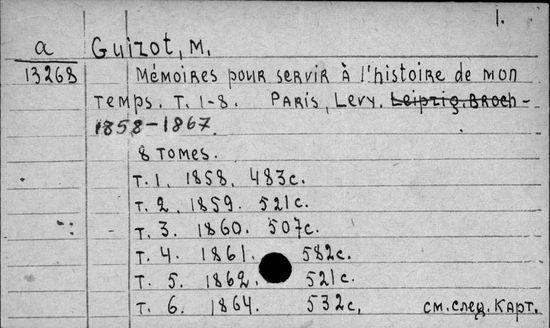 1.
a Guizot, M.
13268 Mémoires pour servir à l'histoire de mon
temps. T. 1-8. Paris, Levy. Leipzig, Broch-
1858-1867.
8 tomes.
T. 1. 1858. 483c.
T. 2. 1859. 521c.
T. 3. 1860. 507c.
T. 4. 1861. 582c.
T. 5. 1862. 521c.
T. 6. 1864. 532c, см. след. карт.